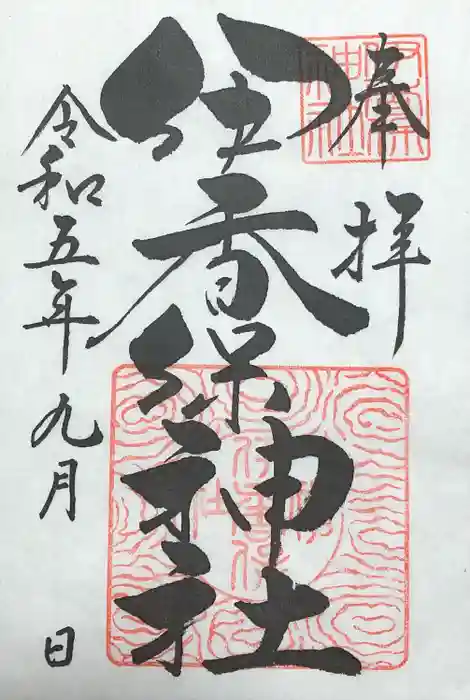 奉拝
伊香保神社
令和五年九月 日